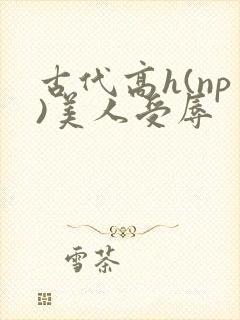 古代高h(np
)美人受辱
雪茶